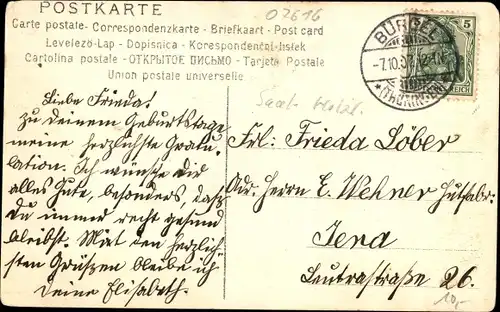 POSTKARTE
Carte postale - Correspondenzkarte - Briefkaart - Post card
Levelezö-Lap - Dopisnica - Korespondenční lístek
Cartolina postale - ОТКРЫТОЕ ПИСЬМО - Tarjeta Postale
Union postale universelle
02616
BÜRGEL
-7.10.07.12-1N.
*(THÜRINGEN)
5
REICH
Liebe Frieda!
Zu Deinem Geburtstage
meine herzlichste Gratu-
lation. Ich wünsche Dir
alles Gute, besonders, dass
Du immer recht gesund
bleibst. Mit den herzlich-
sten Grüßen bleibe ich
Deine Elisabeth.
Frl: Frieda Löber
Adr. Herrn E. Wehner Hutfabr:
Jena
Leutrastraße 26.
10,-